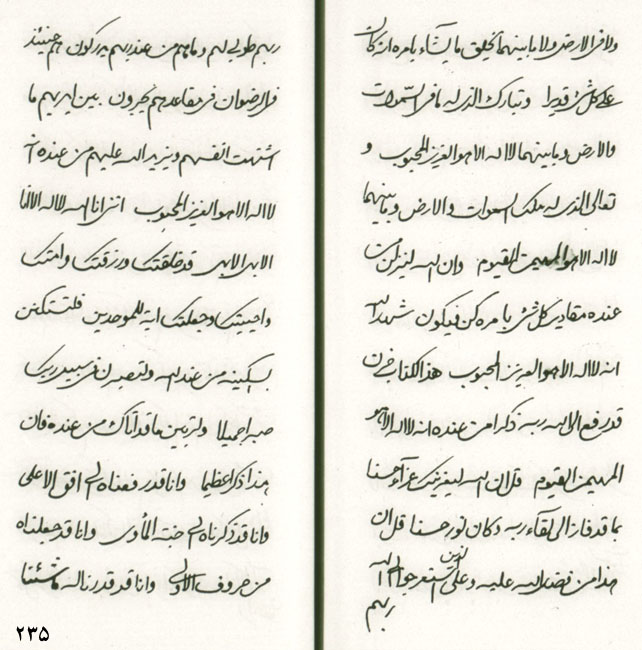 ولا فی الارض ولا ما بینهما یخلق ما یشاء بامره انه کان
علی کل شیء قدیرا و تبارک الذی له ما فی السموات
والارض و ما بینهما لا اله الا هو العزیز المحبوب و
تعالی الذی له ملک السموات والارض و ما بینهما
لا اله الا هو المهیمن القیوم وان الله لینزلن من
عنده مقادیر کل شیء بامره کن فیکون شهد الله
انه لا اله الا هو العزیز المحبوب هذا الکتاب فی
قد رفع الی الله ربه ذکرا من عنده انه لا اله الا هو
المهیمن القیوم قل ان الله لیعزینک عزآء حسنا
بما قد فاز الی لقاء ربه و کان نور حسنا قل ان
هذا من فضل الله علیه و علی الذین استعرجوا الی الله
ربهم
ربهم طوبی لهم و ما هم من عند ربهم یدرکون هم حینئذ
فی الرضوان فی مقاعدهم یحبرون بین ایدیهم ما
اشتهت انفسهم و یزید الله علیهم من عنده انه
لا اله الا هو العزیز المحبوب اننی انا الله لا اله الا انا
الابهی الابهی قد خلقتک ورزقتک وامتک
واحییتک وجعلتک ایة للموحدین فلتسکنن
بسکینه من عند الله ولتصبرن فی سبیل ربک
صبرا جمیلا ولتربین ما قد آتاک من عنده فان
هذا ذکرا عظیما وانا قد رفعناه الی افق الاعلی
وانا قد ذکرناه فی جنة المأوی وانا قد جعلناه
من حروف الاولی وانا قد قدرنا له ما شئنا
۲۳۵